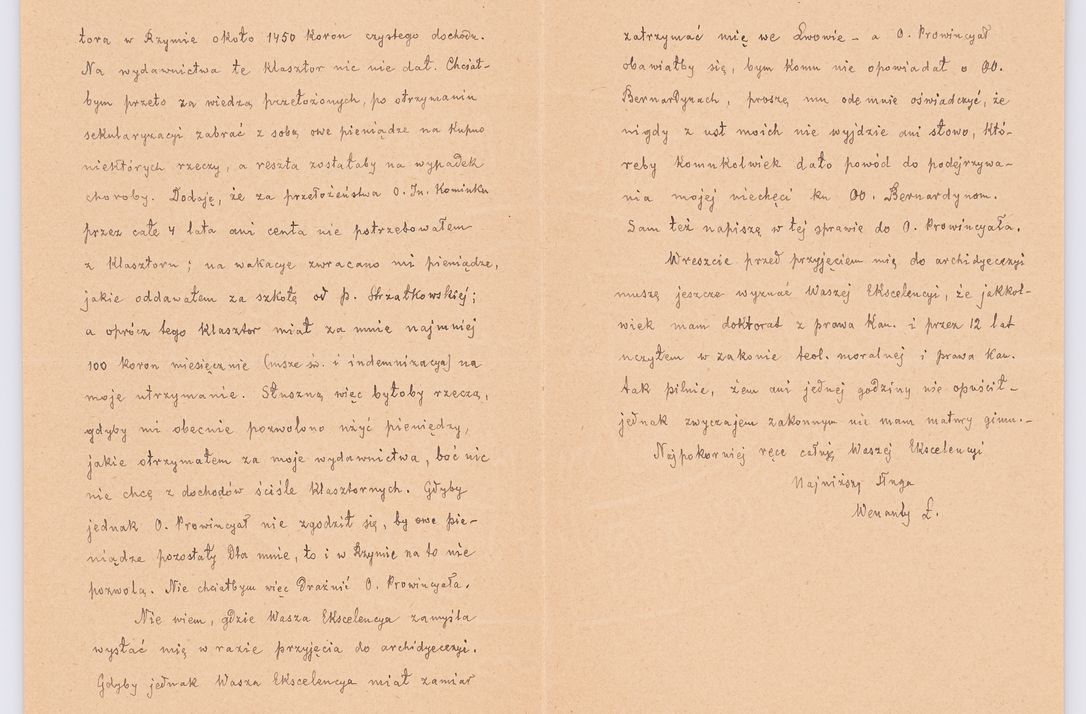 tora w Rzymie około 1450 koron czystego dochodu.
Na wydawnictwa te klasztor nic nie dał. Chciał-
bym przeto za wiedzą przełożonych, po otrzymaniu
sekularyzacyi zabrać z sobą owe pieniądze na kupno
niektórych rzeczy, a reszta zostałaby na wypadek
choroby. Dodaję, że za przełożeństwa O. In. Kominka
przez całe 4 lata ani centa nie potrzebowałem
z klasztoru; na wakacye zwracano mi pieniądze,
jakie oddawałem za szkołę od p. Strzałkowskiej;
a oprócz tego klasztor miał za mnie najmniej
100 koron miesięcznie (msze św. i indemnizacya) na
moje utrzymanie. Słuszną więc byłoby rzeczą,
gdyby mi obecnie pozwolono użyć pieniędzy,
jakie otrzymałem za moje wydawnictwa, boć nic
nie chcę z dochodów ściśle klasztornych. Gdyby
jednak O. Prowincyał nie zgodził się, by owe pie-
niądze pozostały dla mnie, to i w Rzymie na to nie
pozwolą. Nie chciałbym więc drażnić O. Prowincyała.
Nie wiem, gdzie Wasza Ekscelencya zamyśla
wysłać mię w razie przyjęcia do archidyecezyi.
Gdyby jednak Wasza Ekscelencya miał zamiar
zatrzymać mię we Lwowie - a O. Prowincyał
obawiałby się, bym komu nie opowiadał o OO.
Bernardynach, proszę mu odemnie oświadczyć, że
nigdy z ust moich nie wyjdzie ani słowo, któ-
reby komukolwiek dało powód do podejrzywa-
nia mojej niechęci ku OO. Bernardynom.
Sam też napiszę w tej sprawie do O. Prowincyała.
Wreszcie przed przyjęciem mię do archidyecezyi
muszę jeszcze wyznać Waszej Ekscelencyi, że jakkol-
wiek mam doktorat z prawa kan. i przez 12 lat
uczyłem w zakonie teol. moralnej i prawa kan.
tak pilnie, żem ani jednej godziny nie opuścił -
jednak zwyczajem zakonnym nie mam matury gimn. -
Najpokorniej ręce całuję Waszej Ekscelencyi
Najniższy sługa
Wenanty Ł.